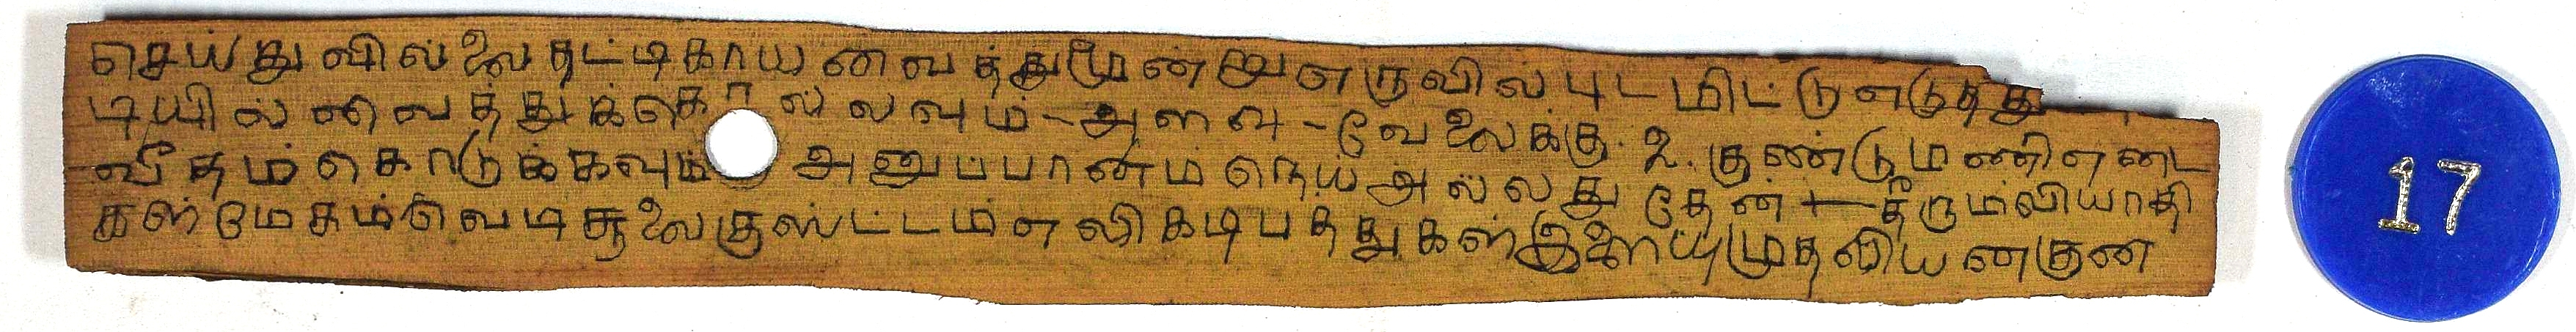 செய்து வில்லை தட்டிகாய வைத்துமூன்றுஎருவில்புடமிட்டுஎடுத்து
டியில் வைத்துக்கொல்லவும்-அளவு-வேலைக்கு.2.குண்டுமணிஎடை
வீதம்கொடுக்கவும் அனுப்பானம்நெய்அல்லது தேன்-தீரும்வியாதி
கள்மேகம்வெடிசூலைகுஸ்ட்டம்எலிகடிபத்துகள்இளையுமுதலியனகுண
17